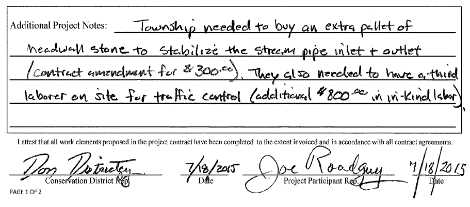 Additional Project Notes: Township needed to buy an extra pallet of
headwall stone to stabilize the stream pipe inlet + outlet
(contract amendment for $300.00). They also needed to have a third
laborer on site for traffic control (additional $800.00 in in-kind labor).
I attest that all work elements proposed in the project contract have been completed to the extent invoiced and in accordance with all contract agreements.
Don Districter 7/18/2015 Joe Roadguy 7/18/2015
Conservation District Rep Date Project Participant Rep. Date
PAGE 1 OF 2